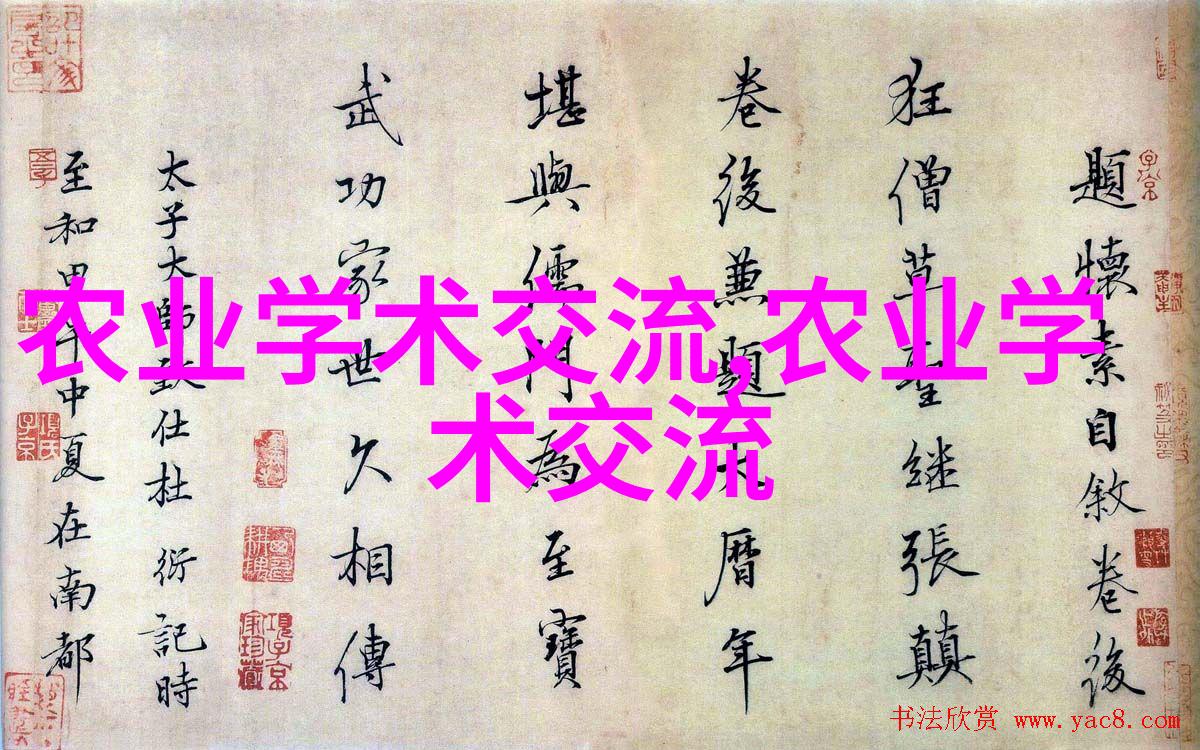 題懷素自敘卷後
狂僧草聖继張顛
卷後兼題大曆年
堪與儒門為至寶
武功家世久相傳
太子大師致仕杜衍記時
至和甲午中夏在南都
农业学术交流,农业学
术交流
书法欣赏 www.yac8.com